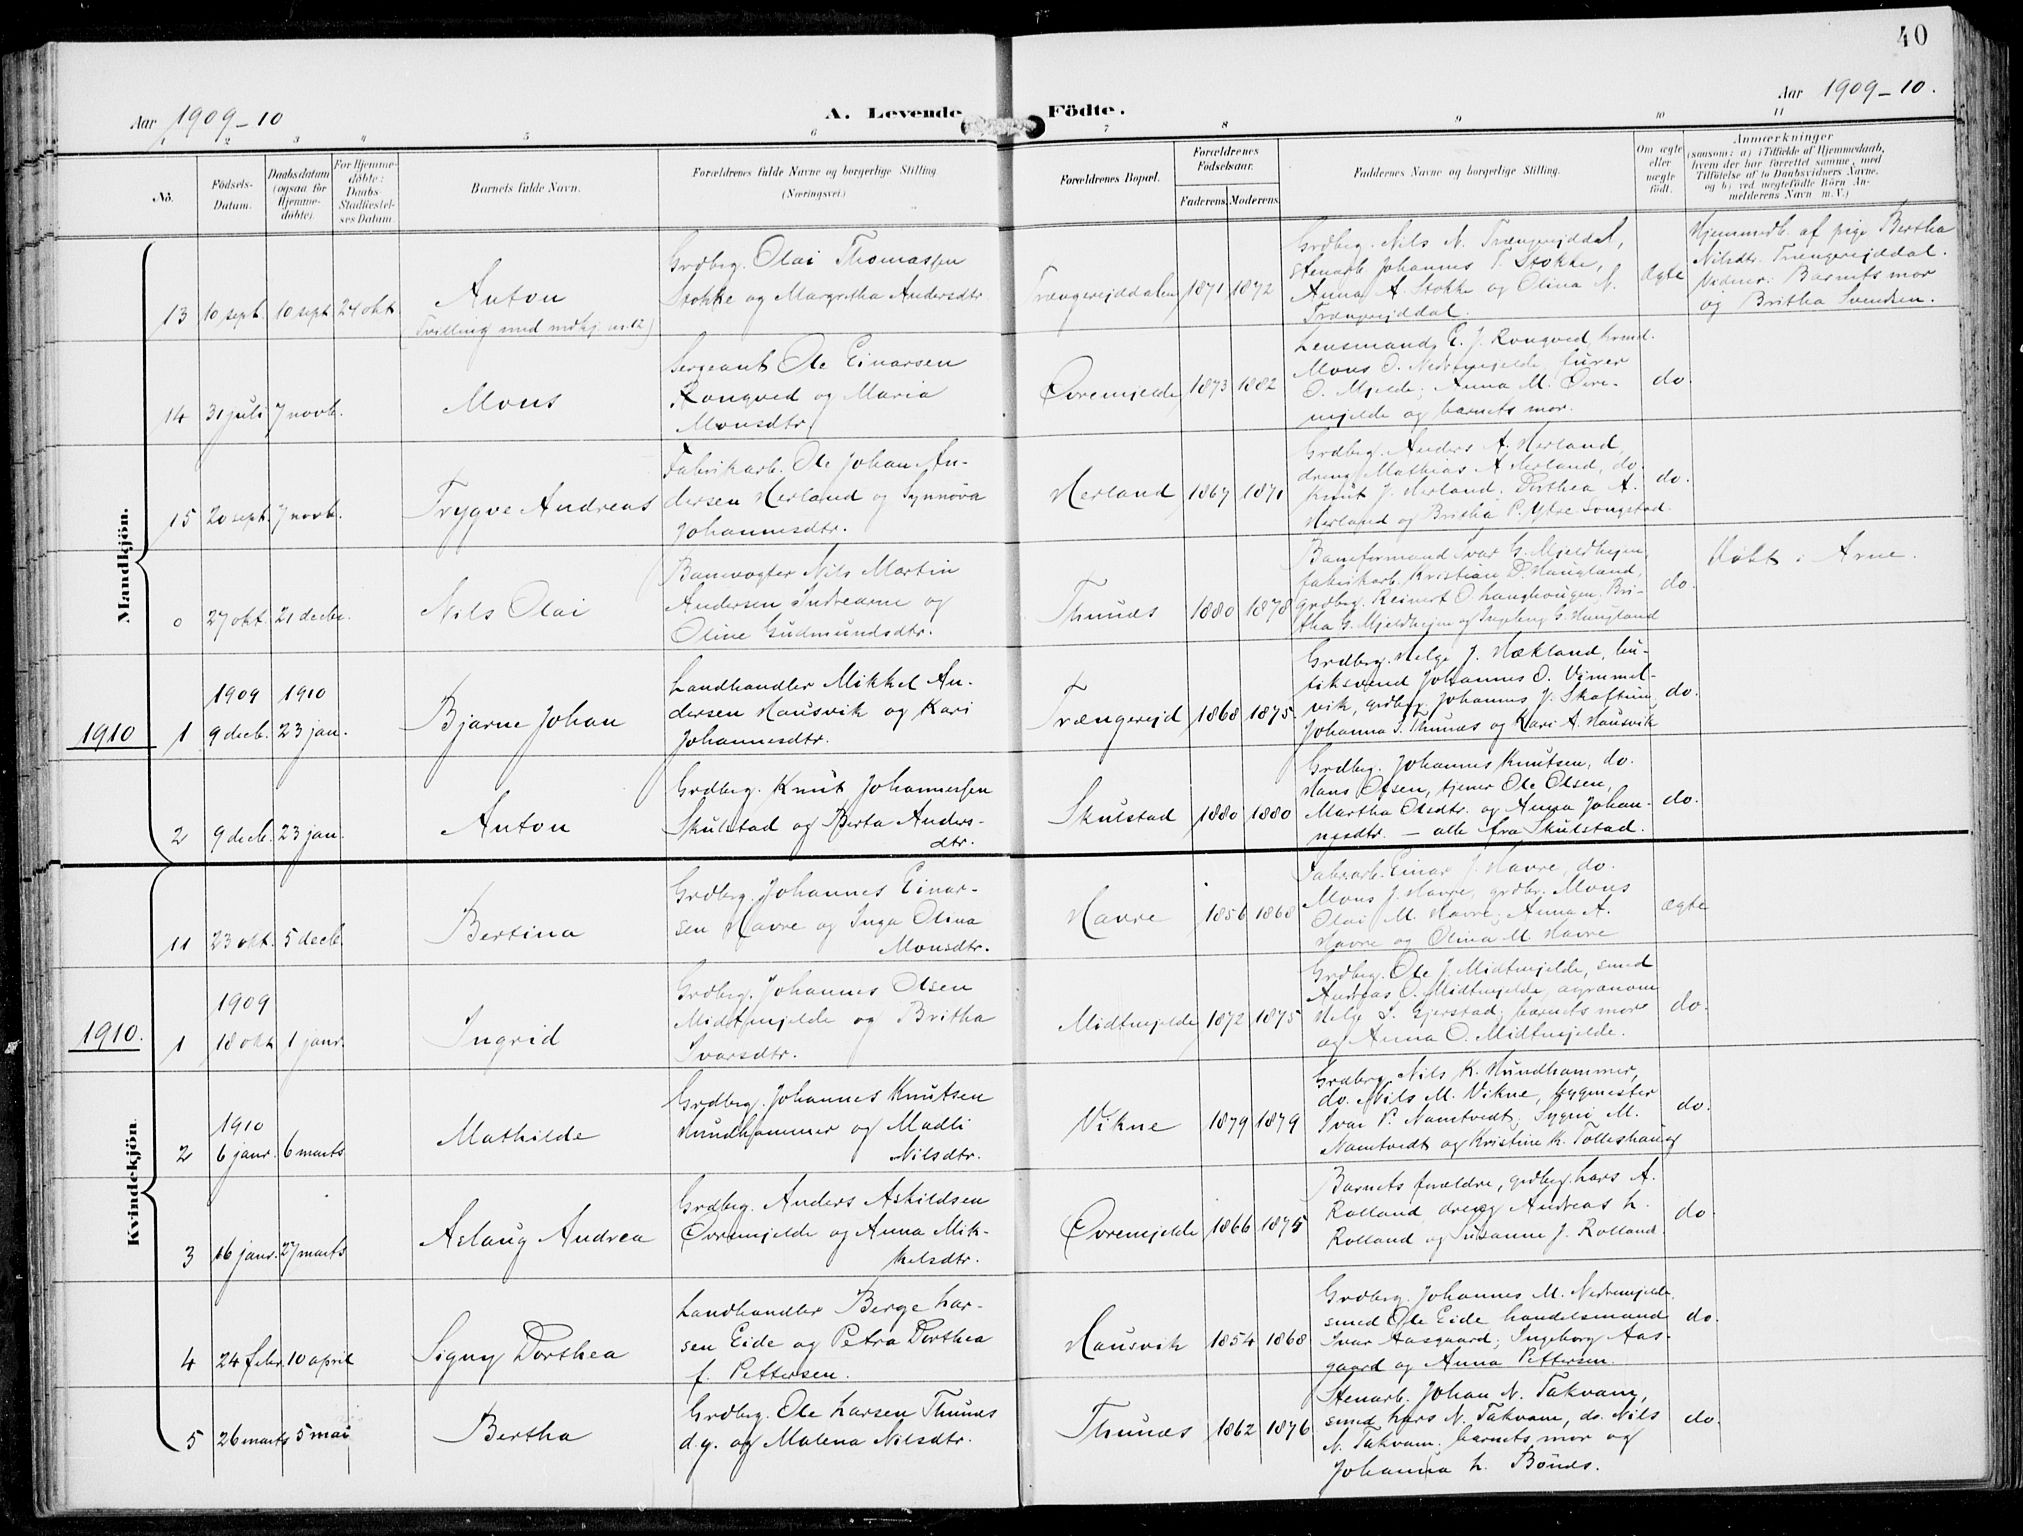 40
Aar 1909-10
A. Levende Födte.
Aar 1909-10.
1 2 3 4 5 6 7 8 9 10 11
No.
Födsels-
Datum.
Daabsdatum
(ogsaa för
Hjemme-
döbte).
For Hjemme-
döbte:
Daabs-
Stadfæstel-
ses Datum.
Burnets fulde Navn.
Forældrenes fulde Navne og borgerlige Stilling.
(Næringsvei.)
Forældrenes Bopæl.
Forældrenes
Födselsaar.
Faderens. Moderens.
Faddernes Navne og borgerlige Stilling.
Om ægte
eller
uægte
födt.
Anmærkninger
(saasom: a) i Tilfælde af Hjemmedaab,
hvem der har forrettet samme, med
Tilföielse af to Daabsvidners Navne,
og b) ved uægtefödte Börn An-
melderens Navn m. V.)
Mandkjön.
13 10 sept. 10 sept 24 okt
Anton
(Tvilling med mdkj. nr. 12)
Grdbrg. Olai Thomassen
Stokke og Margretha Andersdtr.
Trængereiddalen 1871 1872
Grdbrg. Nils N. Trængereiddal,
stenarb. Johannes T. Stokke,
Anna A. Stokke og Olina N.
Trængreiddal.
Ægte
Hjemmedb. af pige Bertha
Nilsdtr. Trængereiddal.
Vidner: Barnets mor
og Britha Svendsen.
14 31 juli 7 novb.
Mons
Sergeant Ole Einarsen
Rongved og Maria
Monsdtr.
Øvremjelde 1873 1882
Lensmand E. J. Rongved,
Mons O. Nedremjelde, lærer
O. Mjelde, Anna M. Øvre-
mjelde og barnets mor.
do.
15 20 sept. 7 novb.
Trygve Andreas
Fabrikarb. Ole Johan An-
dersen Herland og Synnøva
Johannesdtr.
Herland 1867 1871
Grdbrg. Anders A. Herland,
dreng Mathias A. Herland, do.
Knut J. Herland, Dorthea A.
Herland og Britha P. Ytre Songstad.
do.
0 27 okt. 21 decbr.
Nils Olai
Banevogter Nils Martin
Andersen Indrearne og
Oline Gudmundsdtr.
Thunæs 1880 1878
Baneformand Ivar G. Mjeldheim,
fabrikarb. Kristian D. Haugland,
grdbrg. Reinert O. Langhougen, Bri-
tha G. Mjeldheim og Ingeborg G. Haugland
do.
Døbt i Arne.
1910
1909 1910
1 9 decb. 23 jan.
Bjarne Johan
Landhandler Mikkel An-
dersen Hausvik og Kari
Johannesdtr.
Trængereid 1868 1875.
Grdbrg. Helge J. Hækland, bu-
tiksvend Johannes O. Vimmel-
vik, grdbrg. Johannes J. Skaftun,
Johanna T. Thunæs og Kari A. Hausvik
do.
2 9 decb. 23 jan.
Anton
Grdbrg. Knut Johannessen
Skulstad og Berta Anders-
dtr.
Skulstad 1880 1880
Grdbrg. Johannes Knutsen, do.
Hans Olsen, tjener Ole Olsen,
Martha Olsdtr. og Anna Johan-
nesdtr. – alle fra Skulstad.
do.
Kvindekjön.
11 23 okt. 5 decb.
Bertina
Grdbrg. Johannes Einar-
sen Havre og Inga Olina
Monsdtr.
Havre 1856 1868
Fabrarb. Einar J. Havre, do.
Mons J. Havre, grdbr. Mons
Olai M. Havre, Anna A.
Havre og Olina M. Havre
ægte
1910.
1909
1 18 okt 1 janr.
Ingrid
Grdbrg. Johannes Olsen
Midtmjelde og Britha
Ivarsdtr.
Midtmjelde 1872 1875
Grdbrg. Ole J. Midtmjelde, smed
Andreas O. Midtmjelde, agronom
Helge S. Gjerstad, barnets mor
og Anna O. Midtmjelde.
do.
1910
2 6 janr. 6 marts
Mathilde
Grdbrg. Johannes Knutsen
Hundhammer og Madli
Nilsdtr.
Vikne 1879 1879
Grdbrg. Nils K. Hundhammer,
do. Nils M. Vikne, bygmester
Ivar P. Namtvedt, Sygni M.
Namtvedt og Kristine K. Tolleshaug
do.
3 16 janr. 27 marts
Aslaug Andrea
Grdbrg. Anders Askildsen
Øvremjelde og Anna Mik-
kelsdtr.
Øvremjelde 1866 1875
Barnets forældre, grdbrg. Lars A.
Rolland, dreng Andreas L.
Rolland og Susanne J. Rolland.
do.
4 24 febr. 10 april
Signy Dorthea
Landhandler Berge Lar-
sen Eide og Petra Dorthea
f. Pettersen.
Hausvik 1854 1868
Grdbrg. Johannes M. Nedremjelde,
smed Ole Eide, handelsmand
Ivar Aasgaard, Ingeborg Aas-
gaard og Anna Pettersen.
do.
5 26 marts 5 mai
Bertha
Grdbrg. Ole Larsen Thunæs
d.y. og Malena Nilsdtr.
Thunæs 1862 1876
Stenarb. Johan N. Takvam,
smed Lars N. Takvam, do. Nils
N. Takvam, barnets mor og
Johanna L. Bønæs.
do.